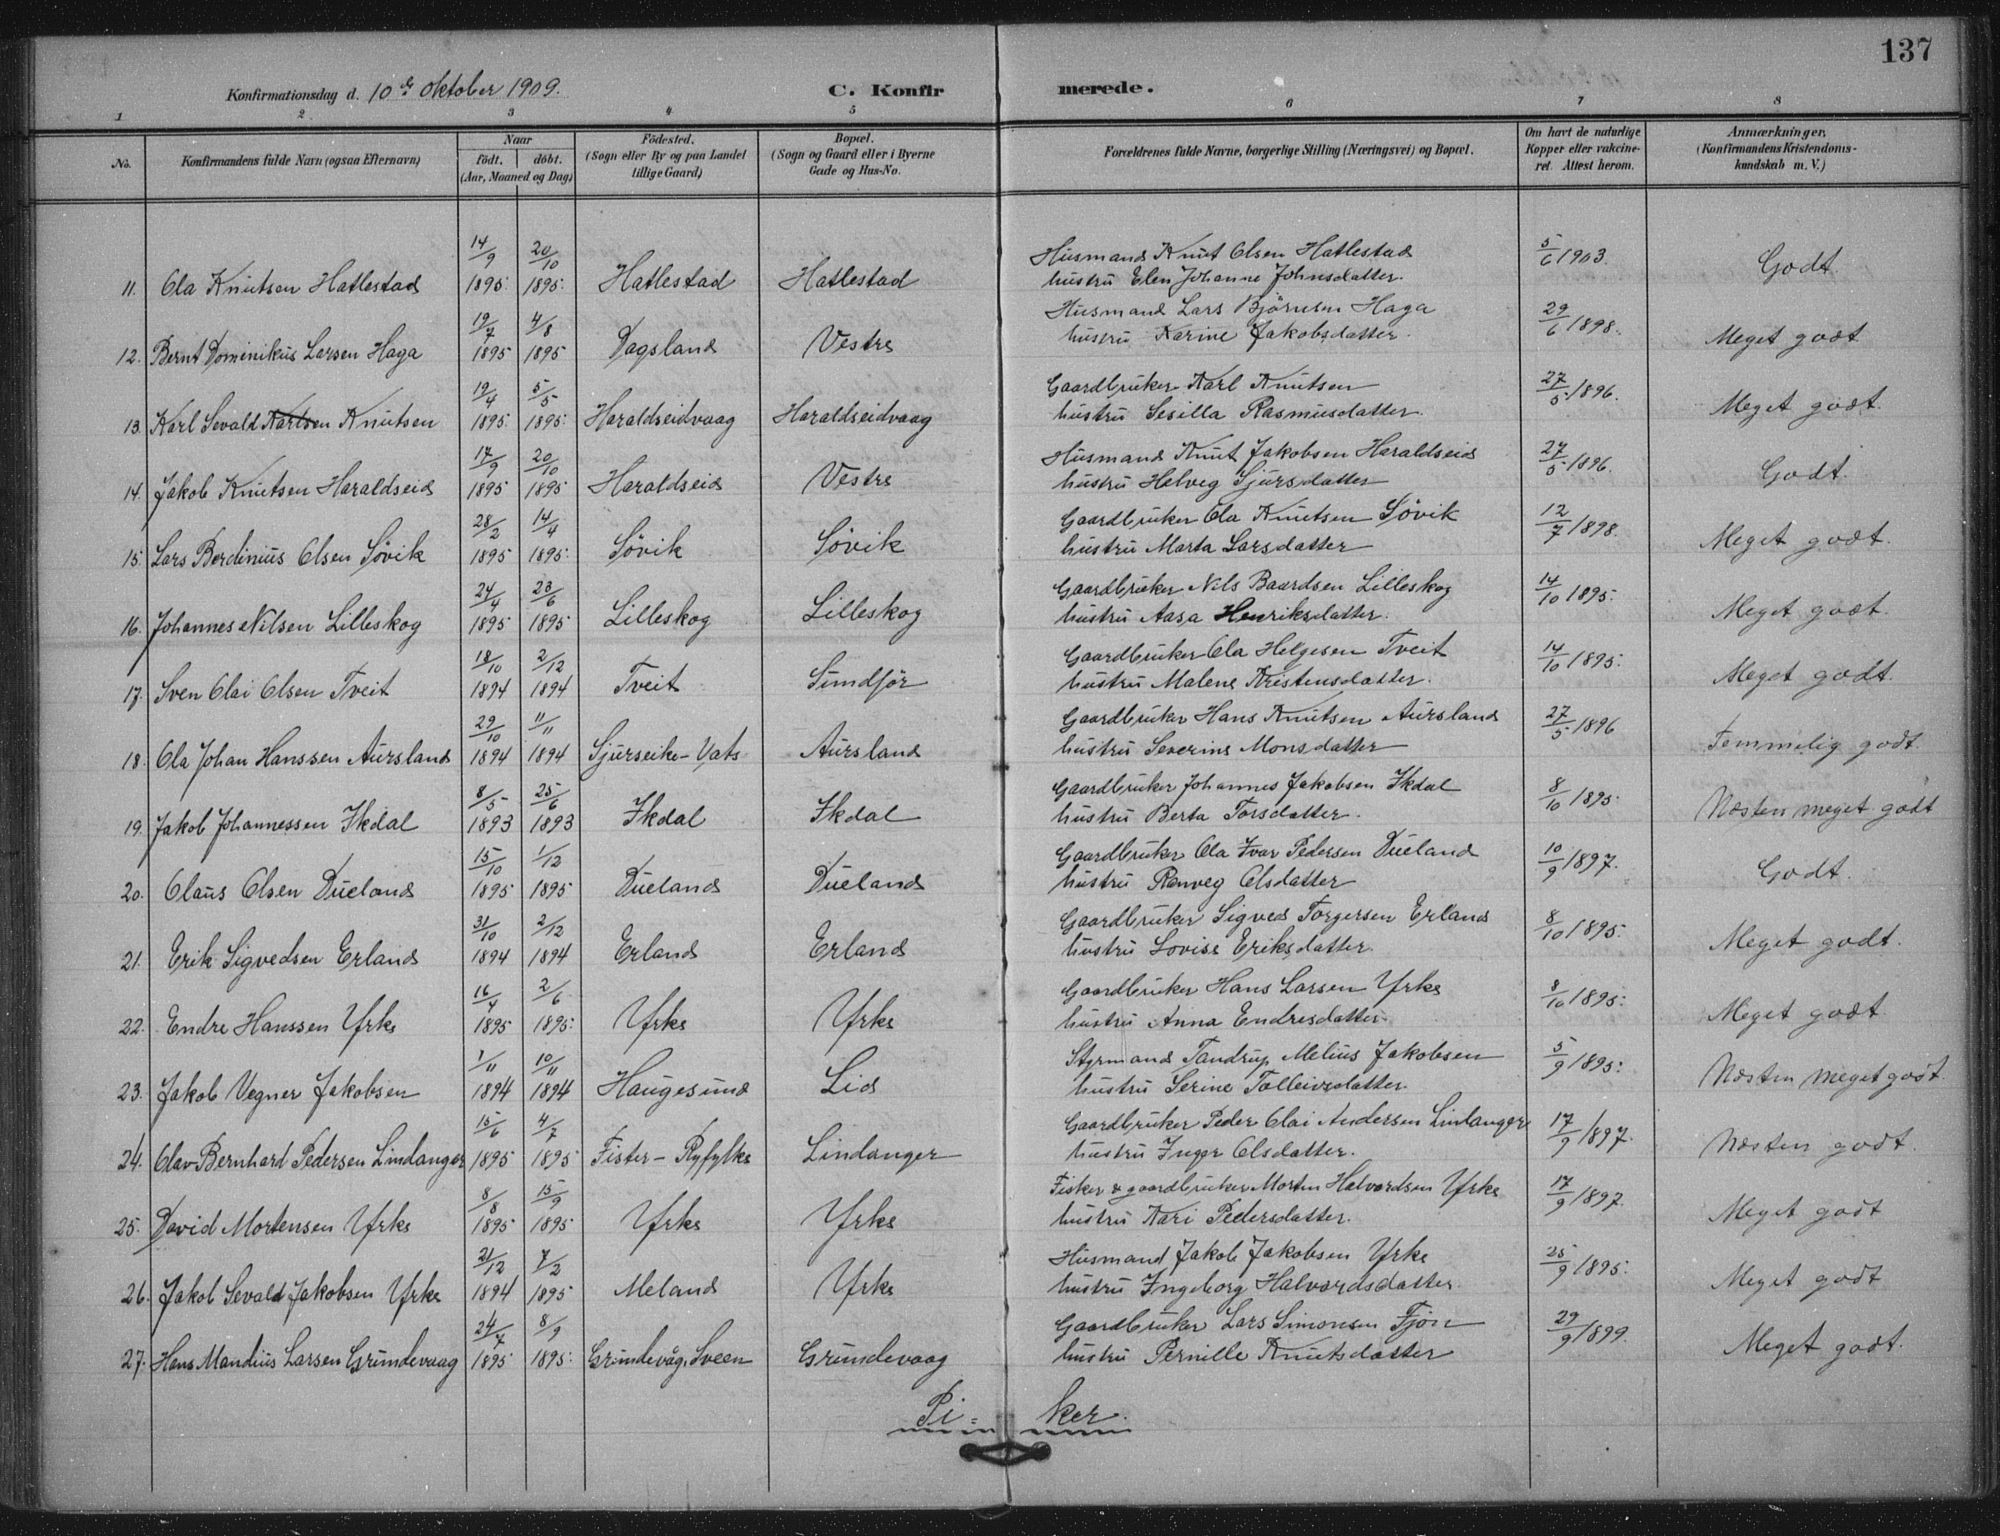 137
Konfirmationsdag d. 10de oktober 1909.
C. Konfirmerede.
1 2 3 4 5 6 7 8
No.
Konfirmandens fulde Navn (ogsaa Efternavn)
Naar
født. døbt.
(Aar, Maaned og Dag)
Fødested.
(Sogn eller By og paa Landet
tillige Gaard)
Bopæl.
(Sogn og Gaard eller i Byerne
Gade og Hus-No.
Forældrenes fulde Navne, borgerlige Stilling (Næringsvei) og Bopæl.
Om havt de naturlige
Kopper eller vakcine-
ret. Attest herom.
Anmærkninger,
(Konfirmandens Kristendoms-
kundskab m. V.)
11. Ola Knutsen Hatlestad 14/9 1895 20/10 1895 Hatlestad Hatlestad Husmand Knut Olsen Hatlestad 5/6 1903. Godt
hustru Elen Johanne Johnsdatter.
12. Bernt Dominikus Larsen Haga 19/7 1895 4/8 1895 Dagsland Vestre Husmand Lars Bjørnsen Haga 29/6 1898. Meget godt
hustru Karine Jakobsdatter.
13. Karl Sevald Karlsen Knutsen 19/4 1895 5/5 1895 Haraldseidvaag Haraldseidvaag Gaardbruker Karl Knutsen 27/5 1896. Meget godt
hustru Sesilla Rasmusdatter.
14. Jakob Knutsen Haraldseid 17/9 1895 20/10 1895 Haraldseid Vestre Husmand Knut Jakobsen Haraldseid 27/5 1896. Godt.
hustru Helveg Sjursdatter
15. Lars Berdinius Olsen Søvik 28/2 1895 14/4 1895 Søvik Søvik Gaardbruker Ola Knutsen Søvik 12/7 1898. Meget godt.
hustru Marta Larsdatter
16. Johannes Nilsen Lilleskog 24/4 1895 23/6 1895 Lilleskog Lilleskog Gaardbruker Nils Baardsen Lilleskog 14/10 1895. Meget godt.
hustru Aasa Henriksdatter.
17. Sven Olai Olsen Tveit 18/10 1894 2/12 1894 Tveit Sundfør Gaardbruker Ola Helgesen Tveit 14/10 1895. Meget godt.
hustru Malene Kristensdatter.
18. Ola Johan Hanssen Aursland 29/10 1894 11/11 1894 Sjurseike-Vats Aursland Gaardbruker Hans Knutsen Aursland 27/5 1896 Temmelig godt.
hustru Severine Monsdatter
19. Jakob Johannessen Ikdal 8/5 1893 25/6 1893 Ikdal Ikdal Gaardbruker Johannes Jakobsen Ikdal 8/10 1895. Næsten meget godt
hustru Berta Torsdatter.
20. Claus Olsen Dueland 15/10 1895 1/12 1895 Dueland Dueland Gaardbruker Ola Ivar Pedersen Dueland 10/9 1897. Godt.
hustru Ranveg Olsdatter
21. Erik Sigvedsen Erland 31/10 1894 2/12 1894 Erland Erland Gaardbruker Sigved Torgersen Erland 8/10 1895. Meget godt.
hustru Lovise Eriksdatter.
22. Endre Hanssen Yrke 16/4 1895 2/6 1895 Yrke Yrke Gaardbruker Hans Larsen Yrke 8/10 1895. Meget godt.
hustru Anna Endresdatter
23. Jakob Vegner Jakobsen 1/11 1894 10/11 1894 Haugesund Lid Styrmand Tandrup Melius Jakobsen 5/9 1895. Næsten meget godt.
hustru Serine Tolleivsdatter.
24. Olav Bernhard Pedersen Lindanger 15/6 1895 4/7 1895 Fister-Ryfylke Lindanger Gaardbruker Peder Olai Andersen Lindanger 17/9 1897. Næsten godt.
hustru Inger Olsdatter.
25. David Mortensen Yrke 8/8 1895 15/9 1895 Yrke Yrke Fisker & gaardbruker Morten Halvordsen Yrke 17/9 1897. Meget godt
hustru Kari Pedersdatter.
26. Jakob Sevald Jakobsen Yrke 21/12 1894 7/2 1895 Meland Yrke Husmand Jakob Jakobsen Yrke 25/9 1895. Meget godt
hustru Ingeborg Halvordsdatter.
27. Hans Mandius Larsen Grindevaag 24/7 1895 8/9 1895 Grindevåg, Sveen Grindevaag Gaardbruker Lars Simonsen Fjøn 29/9 1899. Meget godt.
hustru Pernille Knutsdatter
Pi=ker.